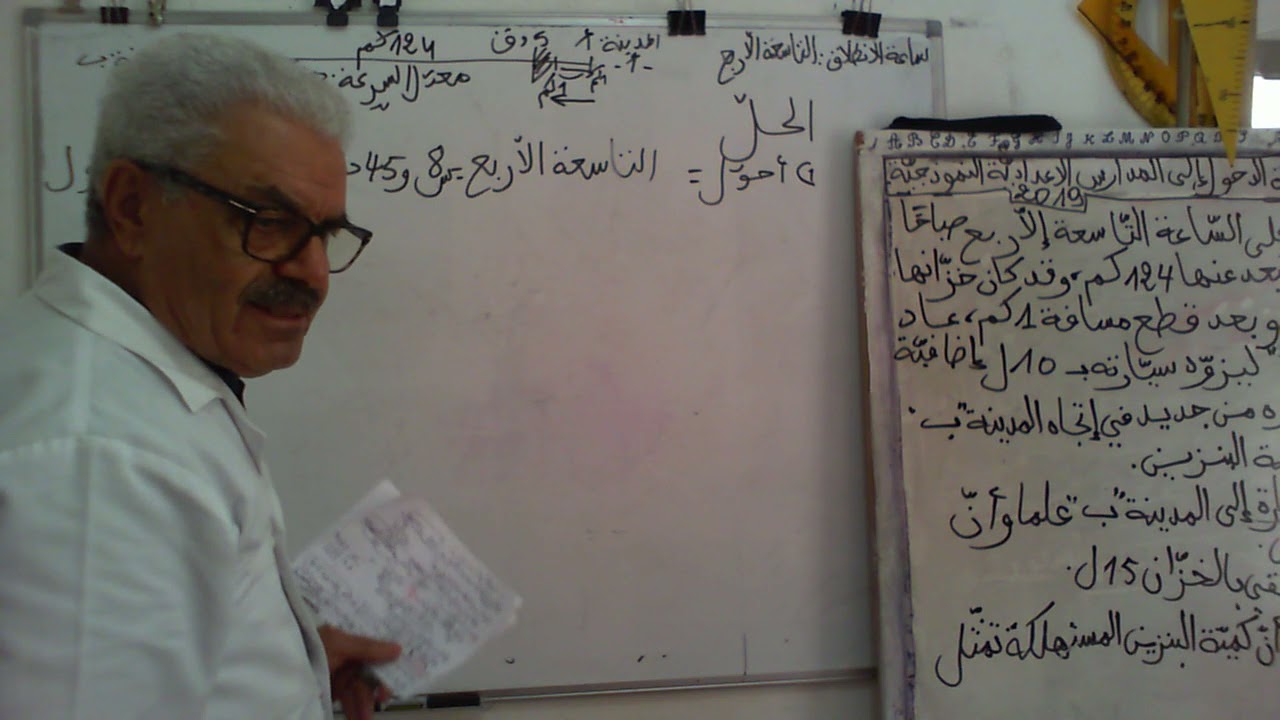 ساعة الانطلاق: التاسعة إلاّ ربع
المدينة أ
-أ-
5 دق
124 كم
معدّل السرعة
1كم
الحلّ
1) أحوّل = التاسعة إلاّ ربع = 8س و45
A B C D E F G H I J K L M N O P Q
الدخول إلى المدارس الإعداديّة النموذجيّة
2019
على السّاعة التّاسعة إلاّ ربع صباحًا
بعد عنها 124 كم، وقد كان خزّانها
وبعد قطع مسافة 1 كم، عاد
ليزوّد سيّارته بـ 10 ل إضافيّة
من جديد في إتجاه المدينة "ب"
البنزين.
إلى المدينة "ب" علما وأنّ
بالخزّان 15 ل.
أنّ كميّة البنزين المستهلكة تمثّل